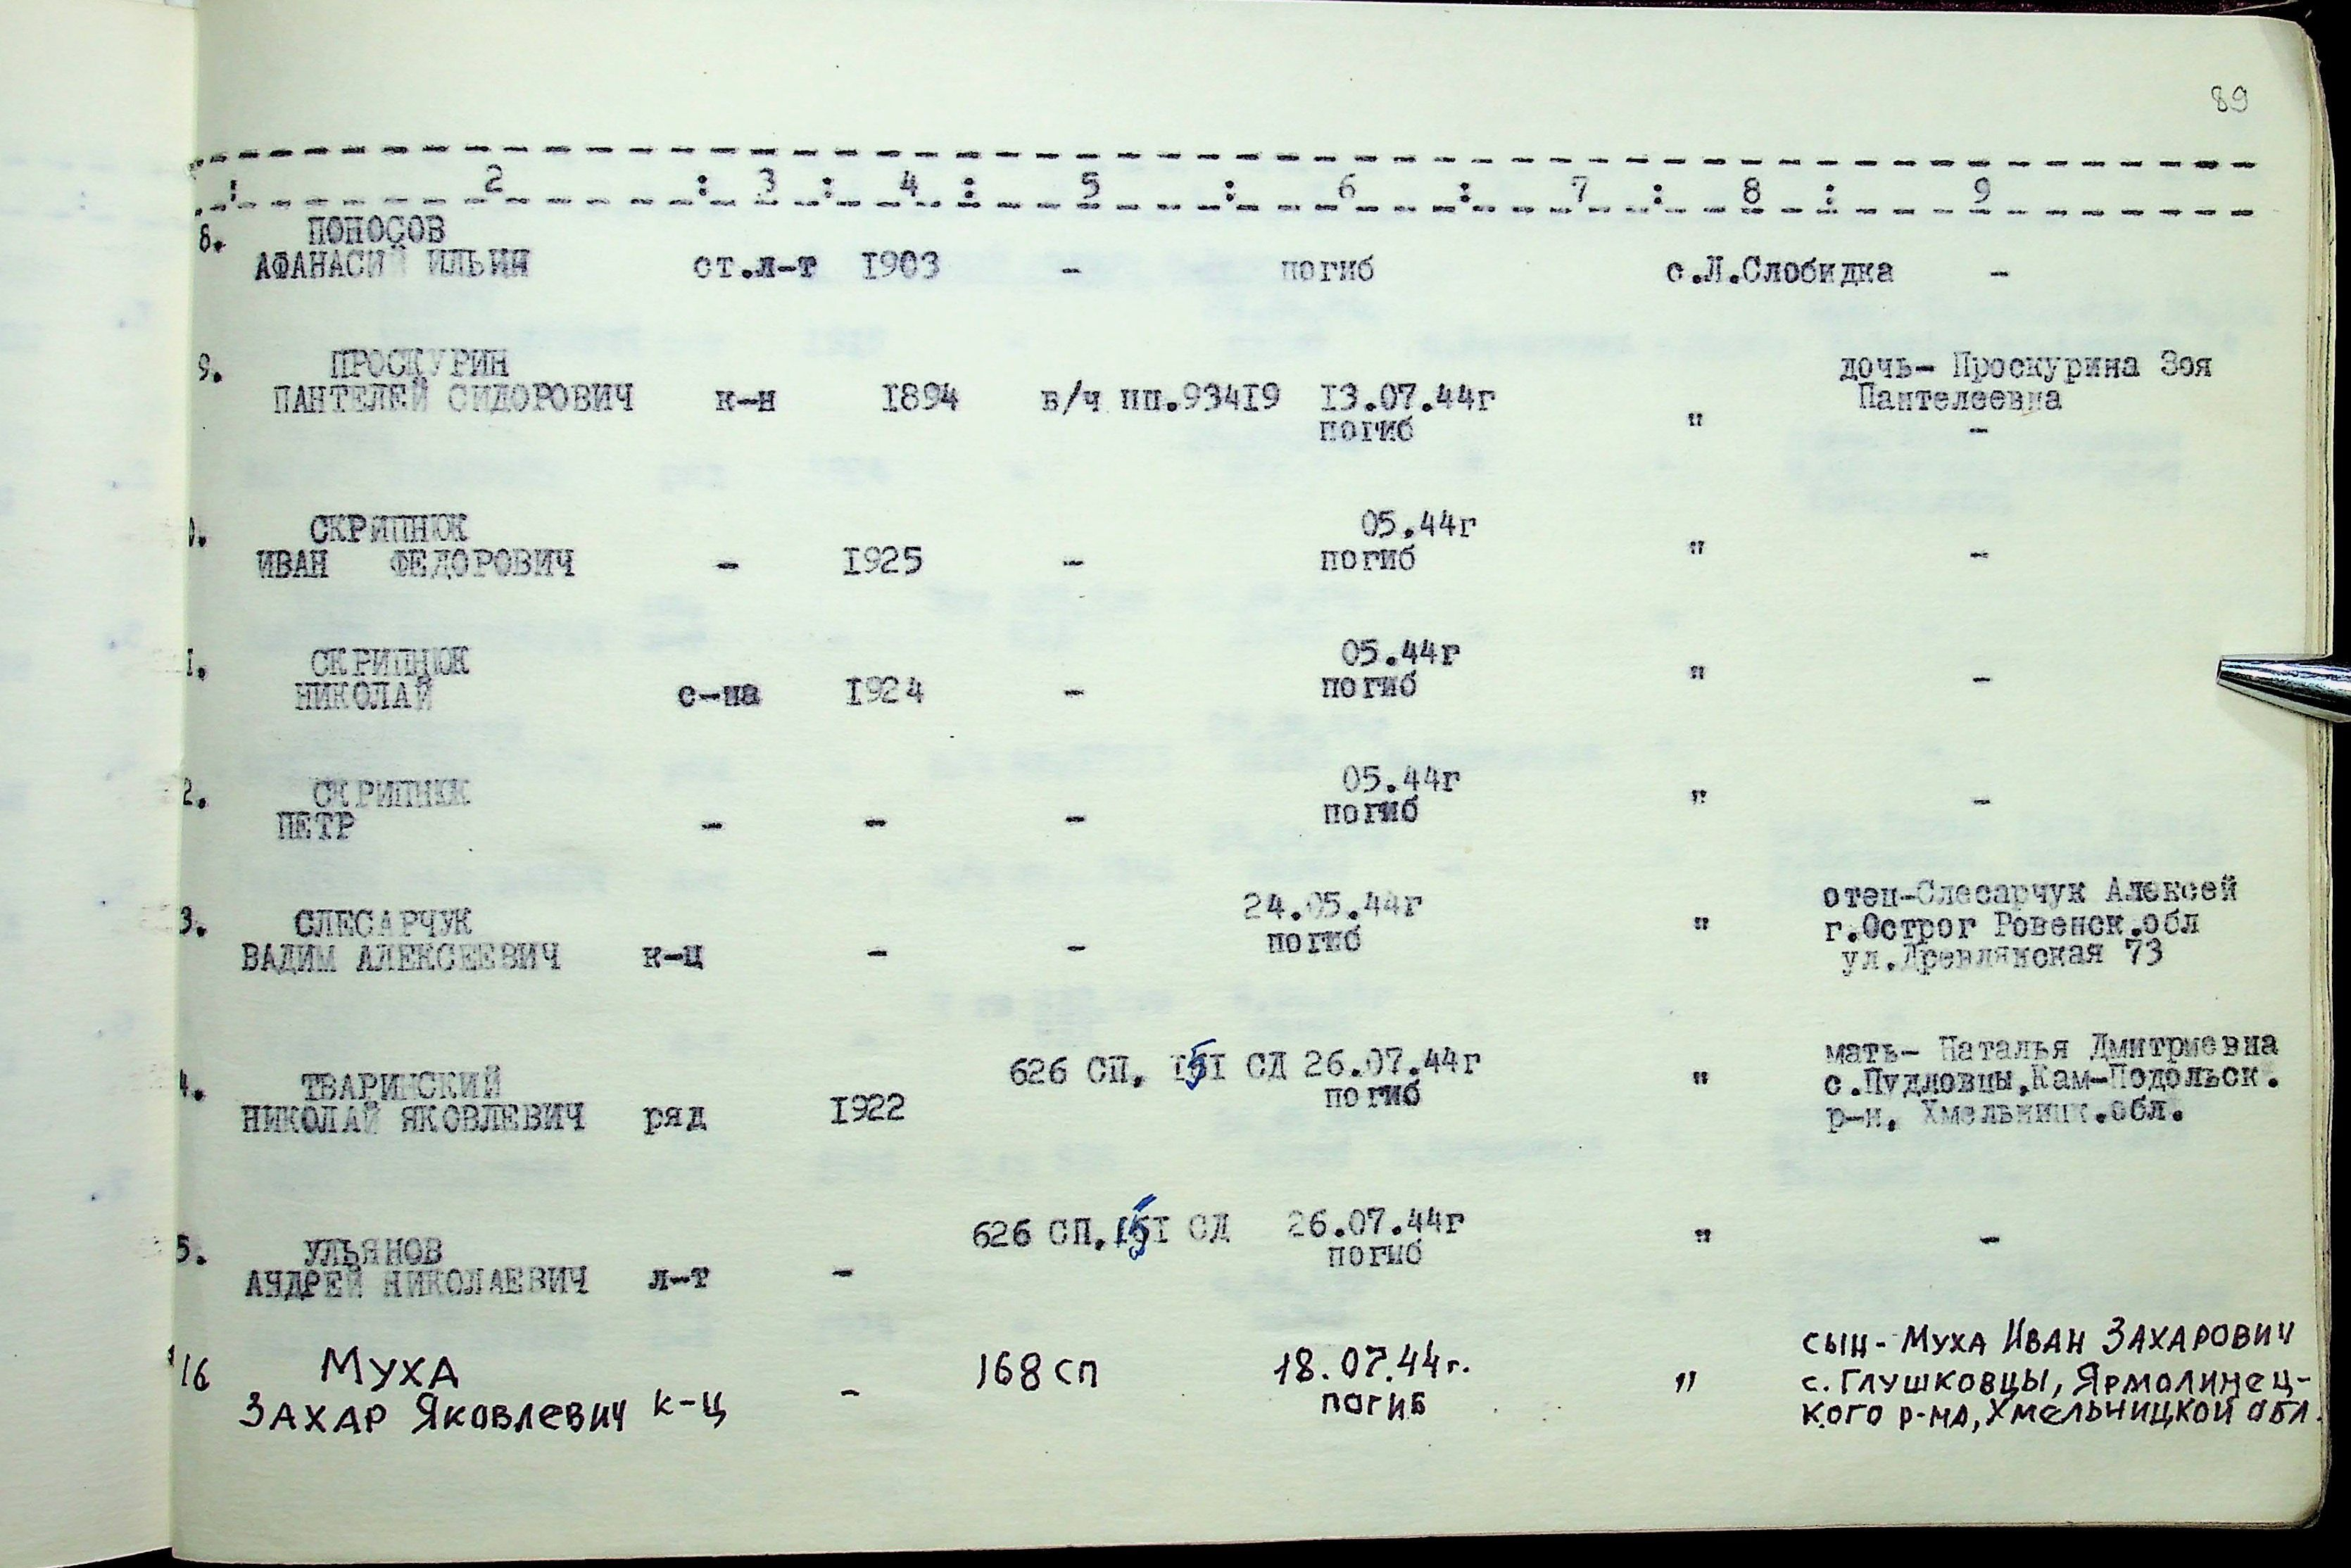 89
: 2 : 3 : 4 : 5 : 6 : 7 : 8 : 9
8. ПОНОСОВ
АФАНАСИЙ ИЛЬИН ст.л-т 1903 - погиб с.Л.Слобидка -
9. ПРОСКУРИН дочь- Проскурина Зоя
ПАНТЕЛЕЙ СИДОРОВИЧ к-н 1894 в/ч пп.93419 13.07.44г " Пантелеевна
погиб -
0. СКРИПНЮК 05.44г
ИВАН ФЕДОРОВИЧ - 1925 - погиб " -
1. СКРИПНЮК 05.44г
НИКОЛАЙ с-на 1924 - погиб " -
2. СКРИПНЮК 05.44г
ПЕТР - - - погиб " -
3. СЛЕСАРЧУК 24.05.44г отец-Слесарчук Алексей
ВАДИМ АЛЕКСЕЕВИЧ к-ц - - погиб " г.Острог Ровенск.обл
ул.Древлянская 73
4. ТВАРИНСКИЙ 626 СП, 151 СД 26.07.44г мать- Наталья Дмитриевна
НИКОЛАЙ ЯКОВЛЕВИЧ ряд 1922 погиб " с.Пудловцы,Кам-Подольск.
р-н, Хмельницк.обл.
5. УЛЬЯНОВ 626 СП, 151 СД 26.07.44г
АНДРЕЙ НИКОЛАЕВИЧ л-т - погиб " -
16 МУХА 168 сп 18.07.44г. " сын- Муха Иван Захарович
ЗАХАР ЯКОВЛЕВИЧ к-ц - погиб с. Глушковцы, Ярмолинец-
кого р-на, Хмельницкой обл.